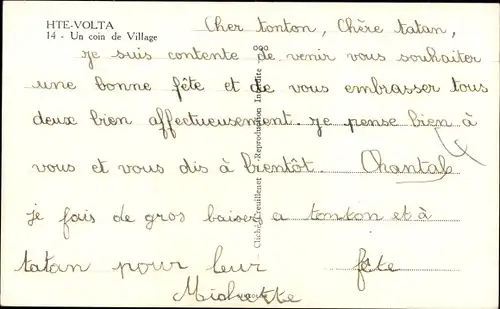 HTE-VOLTA
14 - Un coin de Village
Cher tonton, Chère tatan,
je suis contente de venir vous souhaiter
une bonne fête et de vous embrasser tous
deux bien affectueusement. je pense bien à
vous et vous dis à bientôt. Chantal
je fais de gros baiser a tonton et à
tatan pour leur fête
Reproduction Interdite